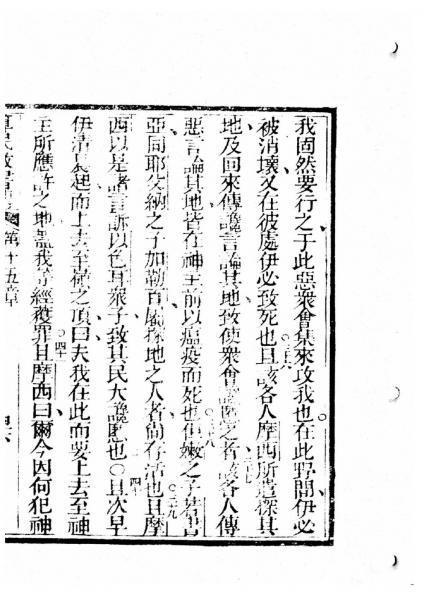 我固然要行之于此惡衆會集來攻我也在此野間伊必
被消壞又在彼處伊必致死也○三六且該各人摩西所遣探其
地及回來傳讒言論其地致使衆會譤之者○三七該各人傳
惡言論其地皆在神主前以瘟疫而死也○三八但嫩之子若書
亞同耶父納之子加勒百屬探地之人者尚存活也○三九且摩
西以是諸言訴以色耳衆子致其民大讒慝也○四十且次早
伊清晨起而上去至嶺之頂曰夫我在此而要上去至神
主所應許之地蓋我等經獲罪○四一且摩西曰爾今因何犯神
第十五章